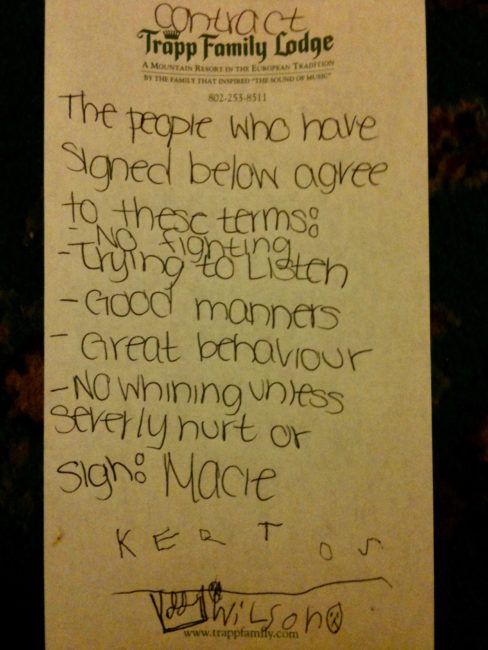 contract
Trapp Family Lodge
A Mountain Resort in the European Tradition
BY THE FAMILY THAT INSPIRED "THE SOUND OF MUSIC"
802-253-8511
The people who have
signed below agree
to these terms:
- No fighting
- Trying to Listen
- Good manners
- Great behaviour
- No whining unless
severly hurt or
sign: Macie
KERTOS
Wilson
www.trappfamily.com